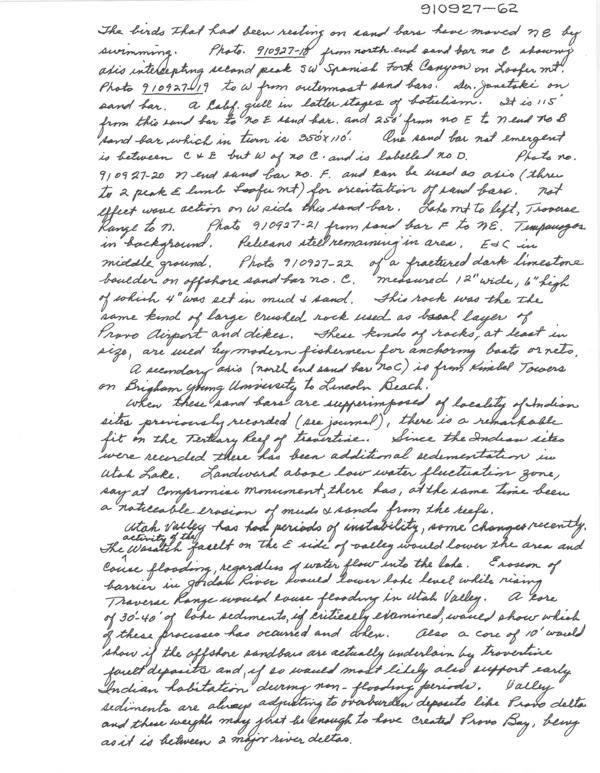 910927-62
The birds that had been resting on sand bars have moved NE by
swimming. Photo. 910927-18 from north end sand bar no C showing
axis intercepting second peak SW Spanish Fork Canyon on Loafer mt.
Photo 910927-19 to W from outermost sand bars. Dr. Janetski on
sand bar. A Calif. gull in latter stages of botulism. It is 115'
from this sand bar to no E sand bar. and 250' from no E to N end no B
sand bar which in turn is 350x110'. One sand bar not emergent
is between C & E but W of no C. and is labelled no D. Photo no.
910927-20 N end sand bar no. F. and can be used as axis (thru
to 2 peak E limb Loafer mt) for orientation of sand bars. Not
effect wave action on W side this sand bar. Lake mt to left, Traverse
Range to N. Photo 910927-21 from sand bar F to NE. Timpanogos
in background. Pelicans still remaining in area. E & C in
middle ground. Photo 910927-22 of a fractured dark limestone
boulder on offshore sand bar no. C. measured 12" wide, 6" high
of which 4" was set in mud & sand. This rock was the the
same kind of large crushed rock used as basal layer of
Provo Airport and dikes. These kinds of rocks, at least in
size, are used by modern fishermen for anchoring boats or nets.
A secondary axis (north end sand bar no C) is from Kimbel Towers
on Brigham Young University to Lincoln Beach.
When these sand bars are supperimposed of locality of Indian
sites previously recorded (see journal), there is a remarkable
fit on the Tertiary Reef of travertine. Since the Indian sites
were recorded there has been additional sedimentation in
Utah Lake. Landward above low water fluctuation zone,
say at Compromise Monument, there has, at the same time been
a noticeable erosion of muds & sands from the reefs.
Utah Valley has had periods of instability, some changes recently.
The activity of the Wasatch fault on the E side of valley would lower the area and
cause flooding, regardless of water flow into the lake. Erosion of
barrier in Jordan River would lower lake level while rising
Traverse Range would cause flooding in Utah Valley. A core
of 30'-40' of lake sediments, if critically examined, would show which
of these processes has occurred and when. Also a core of 10' would
show if the offshore sandbars are actually underlain by travertine
fault deposits and, if so would most likely also support early
Indian habitation during non-flooding periods. Valley
sediments are always adjusting to overburden deposits like Provo delta
and these weights may just be enough to have created Provo Bay, being
as it is between 2 major river deltas.